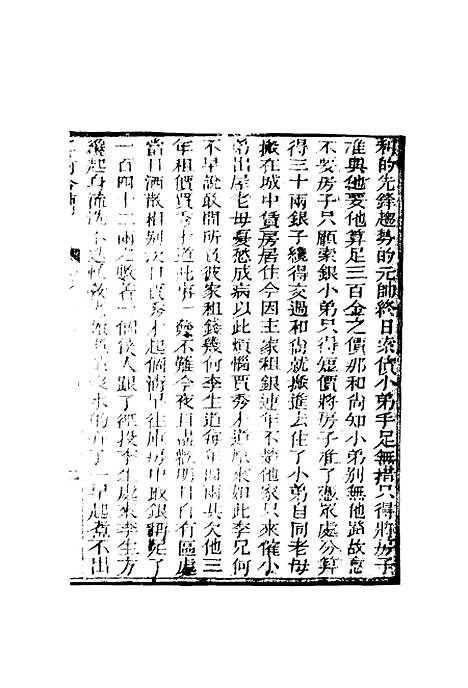 利的先鋒趨勢的元帥終日索債小弟手足無措只得將房子
准與他要他算足三百金之價那和尚知小弟別無他路故意
不要房子只顧索銀小弟只得短價將房子准了憑眾處分算
得三十兩銀子纔得交過和尚就搬進去住了小弟自同老母
搬在城中賃房居住今因主家租銀連年不楚他家只來催小
弟出屋老母憂愁成病以此煩惱賈秀才道原來如此李兄何
不早說敢問所負彼家租錢幾何李生道每年四兩共欠他三
年租價賈秀才道此事一發不難今夜且盡歡明日自有區處
當日酒散相別次日賈秀才起個清早往庫房中取銀
一百四十二兩之數著一個僕人跟了徑投李生處來李生方
纔起身梳洗不迭
來的
了一早起煮不出